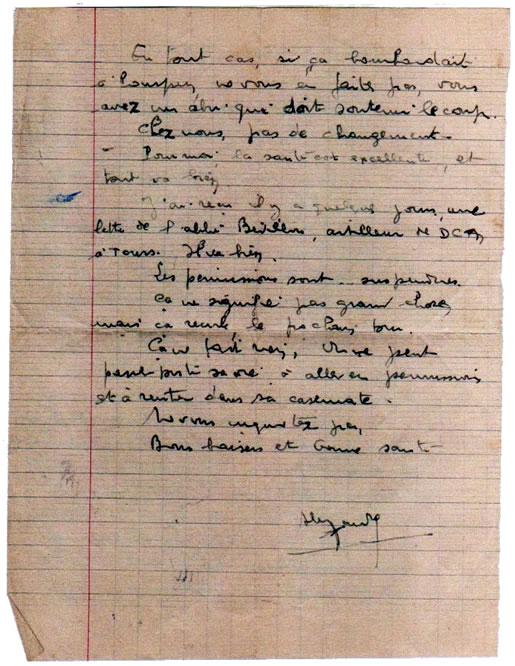 En tout cas, si ça bombardait
à Pompey, ne vous en faites pas, vous
avez un abri qui doit soutenir le coup.
Chez nous, pas de changement.
Pour moi, la santé est excellente, et
tout va bien.
J'ai reçu il y a quelques jours, une
lettre de l'abbé, artilleur DCA
à Tours. Il va bien.
Les permissions sont suspendues.
Ça ne signifie pas grand chose,
mais ça recule le prochain tour.
Ça ne fait rien, on ne peut
passer sa vie à aller en permission
et à rentrer dans sa casemate.
Ne vous inquiétez pas,
Bons baisers et bonne santé